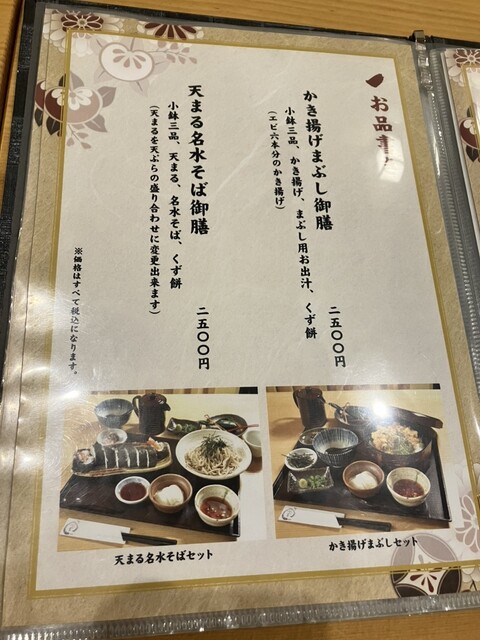 お品書
かき揚げまぶし御膳
小鉢三品、かき揚げ、まぶし用お出汁、くず餅
(エビ六本分のかき揚げ)
二五〇〇円
天まる名水そば御膳
小鉢三品、天まる、名水そば、くず餅
(天まるを天ぷらの盛り合わせに変更出来ます)
二五〇〇円
※価格はすべて税込になります。
天まる名水そばセット
かき揚げまぶしセット